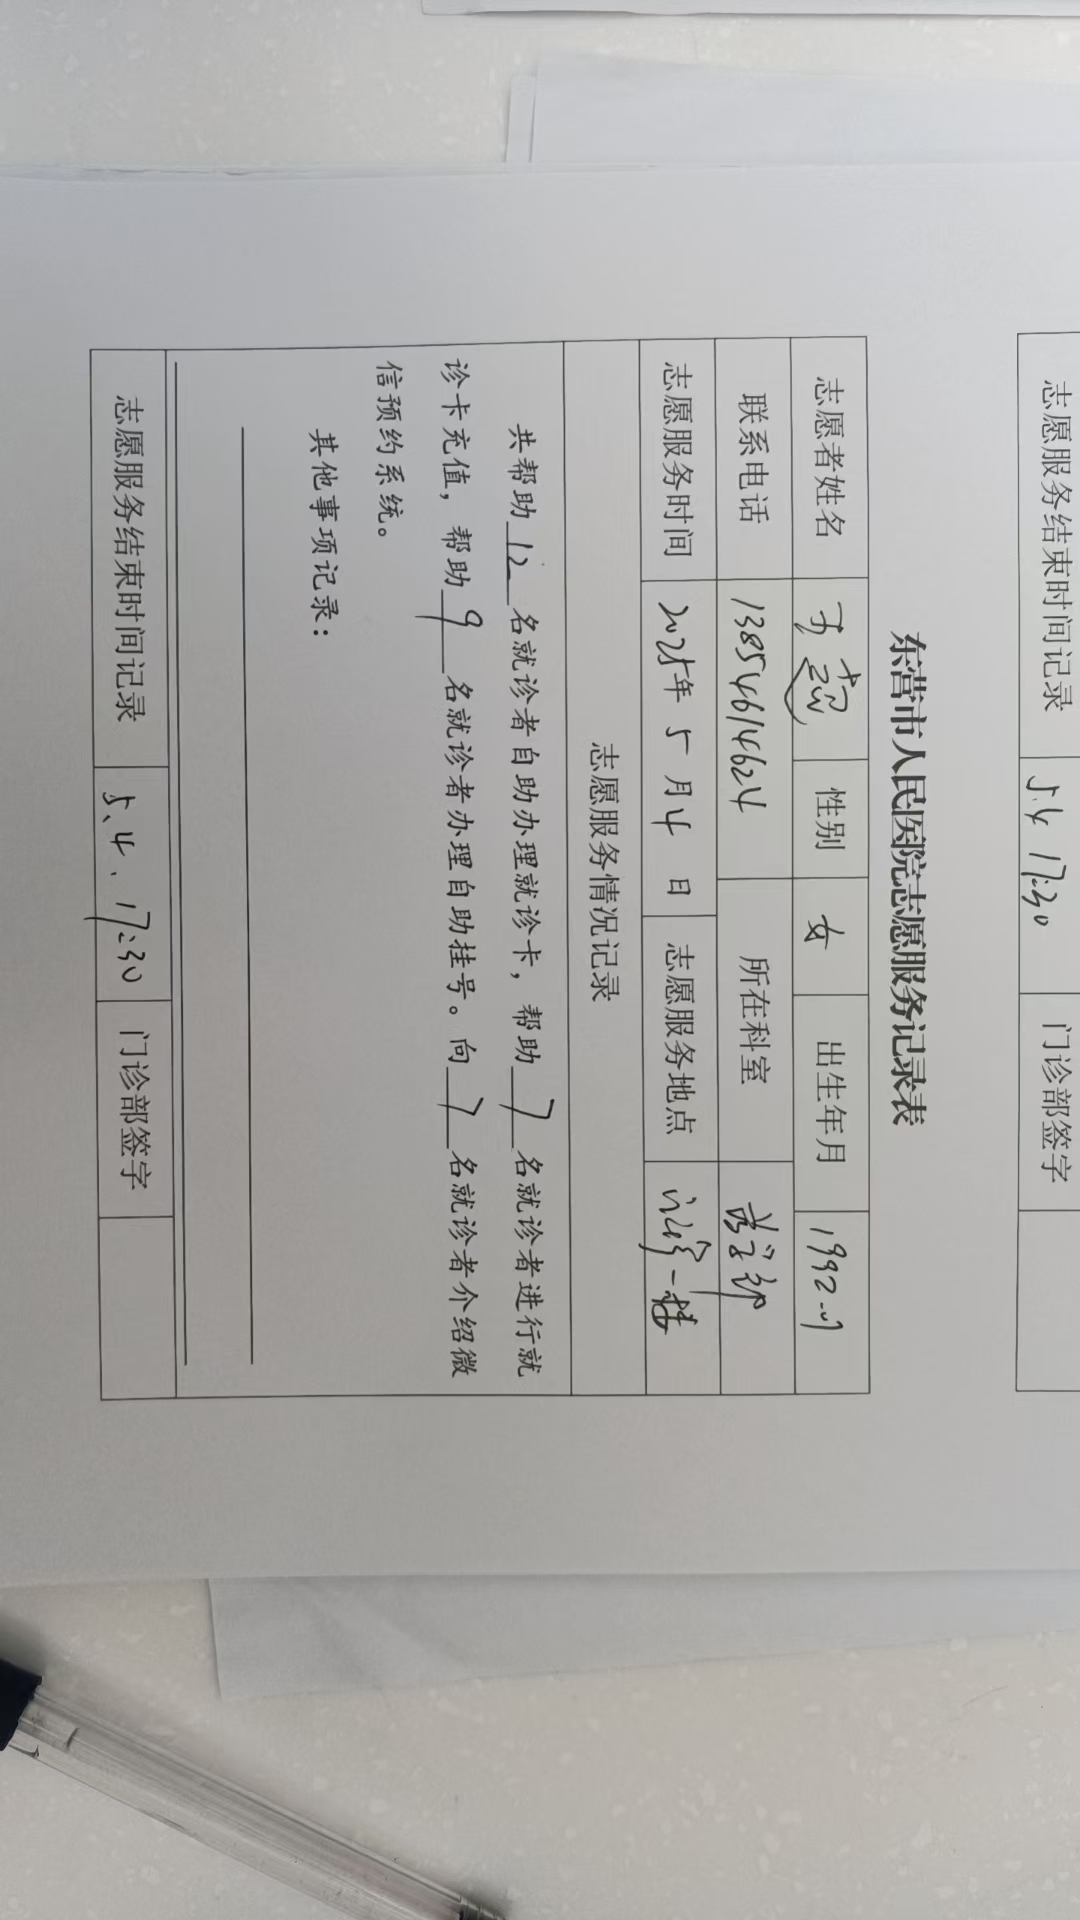 志愿服务结束时间记录 5.4 17:30 门诊部签字
东营市人民医院志愿服务记录表
志愿者姓名 性别 女 出生年月 1992.
联系电话 13854614624 所在科室
志愿服务时间 2025年 5 月 4 日 志愿服务地点 门诊一楼
志愿服务情况记录
共帮助 12 名就诊者自助办理就诊卡，帮助 7 名就诊者进行就
诊卡充值，帮助 9 名就诊者办理自助挂号。向 7 名就诊者介绍微
信预约系统。
其他事项记录：
志愿服务结束时间记录 5、4、17:30 门诊部签字